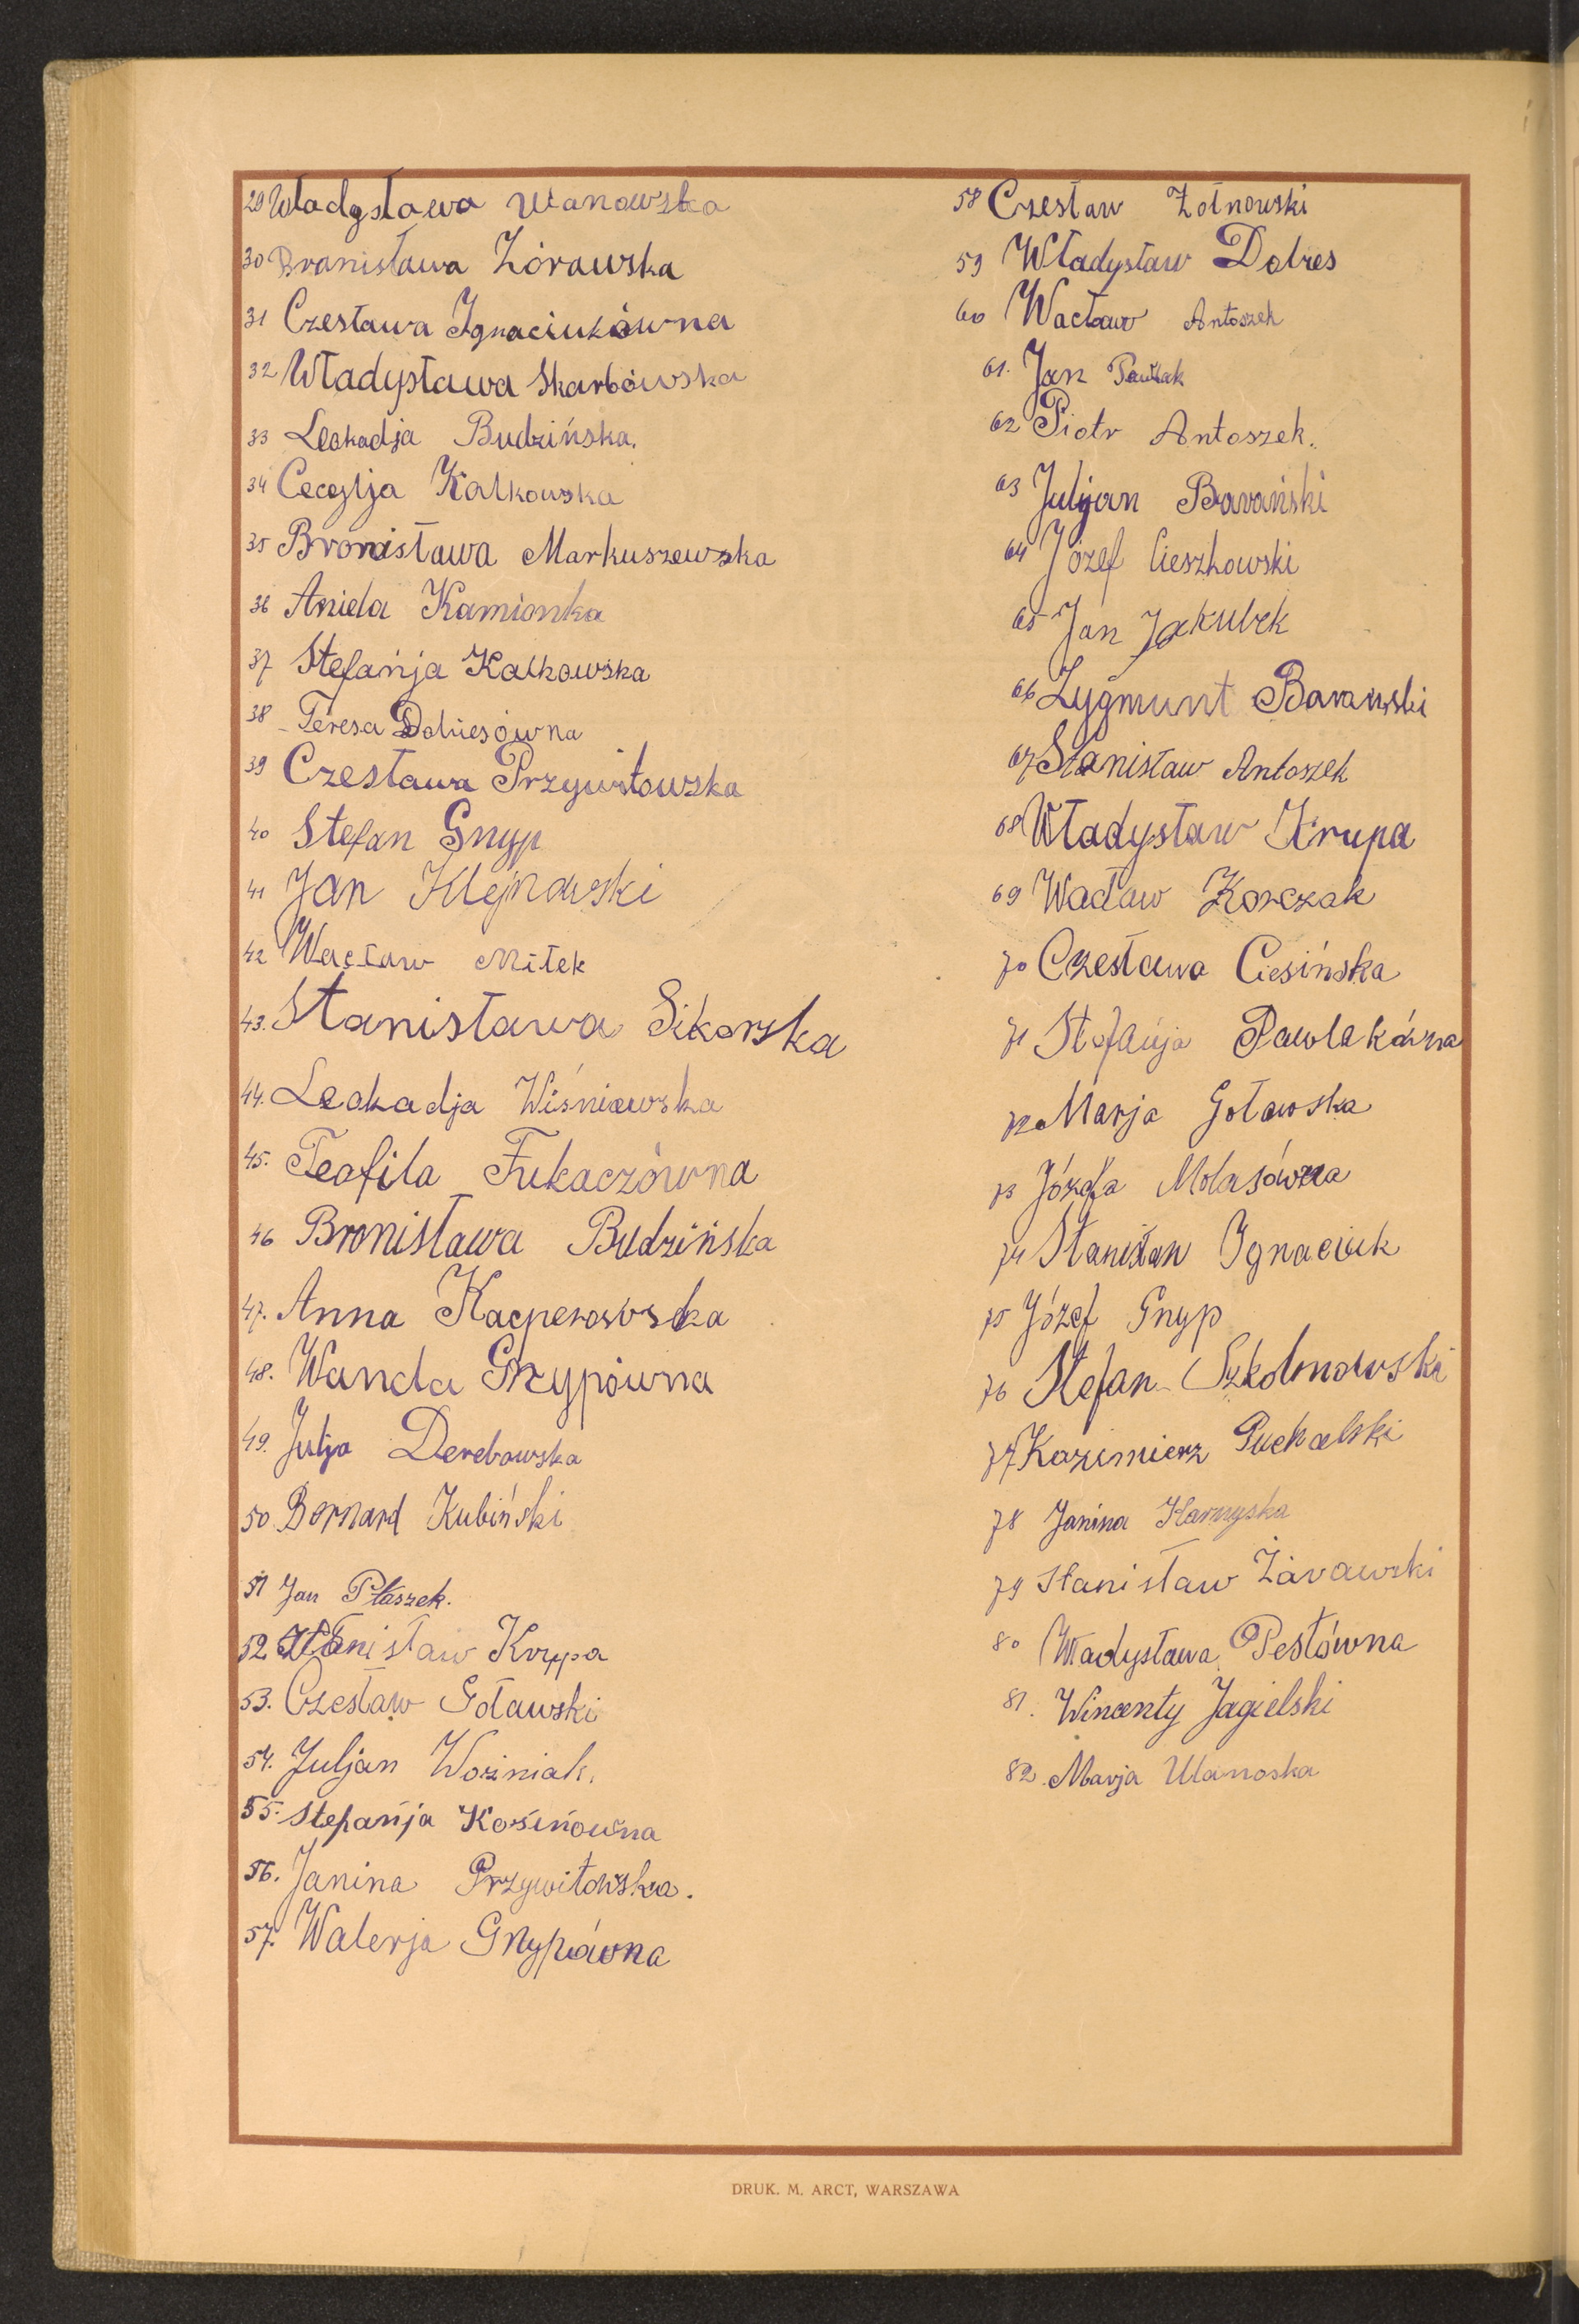 29 Władysława Ulanowska
30 Bronisława Żórawska
31 Czesława Ignaciukówna
32 Władysława Skarbówska
33 Leokadja Budzińska.
34 Cecylja Kałkowska
35 Bronisława Markuszewska
36 Aniela Kamionka
37 Stefanja Kałkowska
38 Teresa Dobresówna
39 Czesława Przywitowska
40 Stefan Gnyp
41 Jan Klejnowski
42 Wacław Miłek
43. Stanisława Sikorska
44. Leokadja Wiśniewska
45. Teofila Fukaczówna
46 Bronisława Budzińska
47. Anna Kacperowska
48. Wanda Gnypówna
49. Julja Derebowska
50. Bernard Kubiński
51 Jan Ptaszek.
52 Stanisław Krupa
53. Czesław Goławski
54. Juljan Woźniak.
55. Stefanja Kosinówna
56. Janina Przywitowska.
57. Walerja Gnypówna
58 Czesław Żołnowski
59 Władysław Dobres
60 Wacław Antoszek
61. Jan Pawlak
62 Piotr Antoszek.
63 Juljan Barański
64 Józef Cieszkowski
65 Jan Jakubek
66 Zygmunt Barański
67 Stanisław Antoszek
68 Władysław Krupa
69 Wacław Korczak
70 Czesława Ciesińska
71 Stefanja Pawlakówna
72 Marja Goławska
73 Józefa Molasówna
74 Stanisław Ignaciuk
75 Józef Gnyp
76 Stefan Szkolmowski
77 Kazimierz Puchalski
78 Janina
79 Stanisław Żórawski
80 Władysława Pestówna
81. Wincenty Jagielski
82. Marja Ulanoska
DRUK. M. ARCT, WARSZAWA